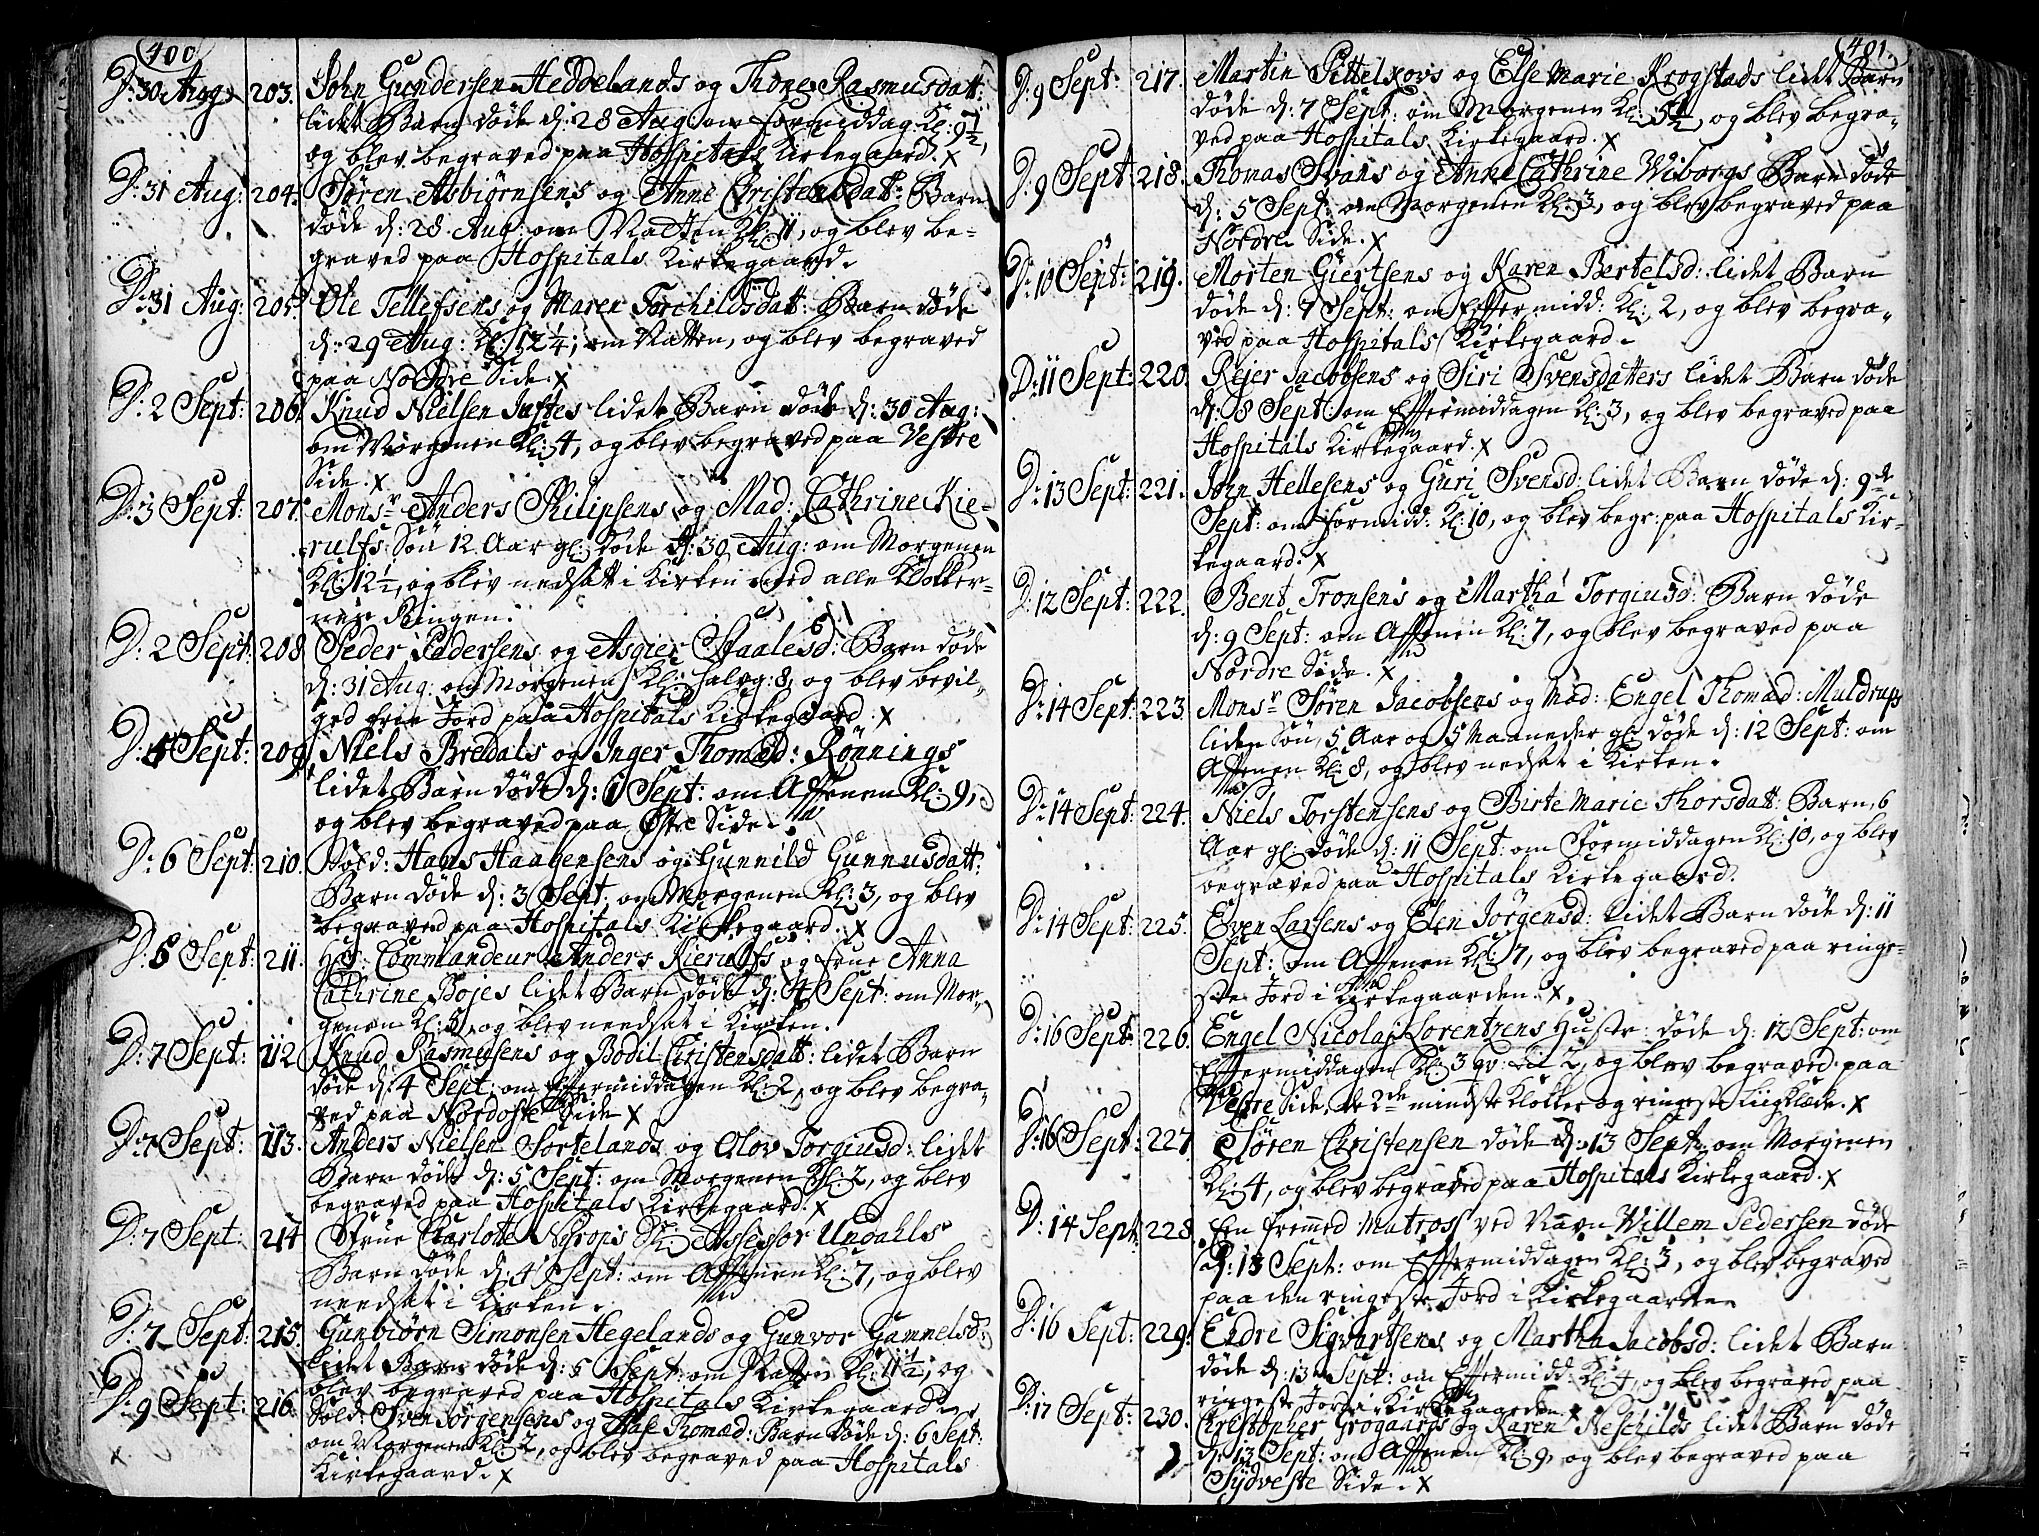 400
D: 30 Aug: 203. John Gundersen Heddelands og Thore Rasmusdatt:
lidet Barn døde d: 28 Aug om formiddag Kl: 9 1/2,
og blev begraved paa Hospitals Kirkegaard. x
D: 31 Aug: 204. Søren Asbiørnsens og Anne Christensdat: Barn
døde d: 28 Aug: om Natten Kl: 11, og blev be=
graved paa Hospitals Kirkegaard.
D: 31 Aug: 205. Ole Tellefsens og Maren Torchildsdatt: Barn døde
d: 29 Aug: Kl: 12 1/4, om Natten, og blev begraved
paa Nordre Side. x
D: 2 Sept: 206. Knud Nielsen Justes lidet Barn døde d: 30 Aug:
om Morgenen Kl: 4, og blev begraved paa Vestre
Side. x
D: 3 Sept: 207. Monsr Anders Philipsens og Mad: Cathrine Kie=
rulfs Søn 12 Aar gl: døde d: 30 Aug: om Morgenen
Kl: 12 1/2, og blev nedsatt i Kirken med alle Klokker=
nes Ringen.
D: 2 Sept: 208 Peder Pedersens og Asgier Staalesd: Barn døde
d: 31 Aug: om Morgenen Kl: halvg: 8, og blev bevil=
ged frie Jord paa Hospitals Kirkegaard. x
D: 4 Sept: 209 Niels Bredals og Inger Thomæd: Rønnings
lidet Barn døde d: 1 Sept: om Afftenen Kl: 9,
og blev begraved paa Østre Side.
D: 6 Sept: 210. Sold: Hans Haagensens og Gunnild Gunnusdatt:
Barn døde d: 3 Sept: om Morgenen Kl: 3, og blev
begraved paa Hospitals Kirkegaard. x
D: 6 Sept: 211. Hr: Commandeur Anders Kierulfs og Frue Anna
Cathrine Bojes lidet Barn døde d: 4 Sept: om Mor=
genen Kl: 5, og blev needsat i Kirken.
D: 7 Sept: 212 Knud Rasmusens og Bodil Christensdatt: lidet Barn
døde d: 4 Sept: om Eftermiddagen Kl: 2, og blev begra=
ved paa Nordoste Side x
D: 7 Sept: 213. Anders Nielsen Sortelands og Olov Torgiusd: lidet
Barn døde d: 5 Sept: om Morgenen Kl: 2, og blev
begraved paa Hospitals Kirkegaard. x
D: 7 Sept: 214 Frue Charlotte Assessor Undahls
Barn døde d: 4 Sept: om Afftenen Kl: 7, og blev
needsat i Kirken.
D: 7 Sept: 215. Gunbiørn Simonsen Hegelands og Gunvor Gammelsd:
lidet Barn døde d: 5 Sept: om Natten Kl: 11 1/2, og
blev begraved paa Hospitals Kirkegaard
D: 9 Sept: 216. Sold: Sven Jørgensens og Thomæd: Barn døde d: 6 Sept:
x om Morgenen Kl: 2, og blev begraved paa Hospitals
Kirkegaard. x
401.
D: 9 Sept: 217. Martin Pittelkovs og Else Marie Krogstads lidet Barn
døde d: 7 Sept: om Morgenen Kl: 5 1/2, og blev begra=
ved paa Hospitals Kirkegaard. x
D: 9 Sept: 218. Thomas Svans og Anne Cathrine Wiborgs Barn døde
d: 5 Sept: om Morgenen Kl: 3, og blev begraved paa
Nordre Side. x
D: 10 Sept: 219. Morten Giertsens og Karen Bertelsd: lidet Barn
døde d: 7 Sept: om Eftermidd: Kl: 2, og blev begra=
ved paa Hospitals Kirkegaard.
D: 11 Sept: 220. Rejer Jacobsens og Siri Svensdatters lidet Barn døde
d: 8 Sept: om Eftermiddagen Kl: 3, og blev begraved paa
Hospitals Kirkegaard. x
D: 13 Sept: 221. Jørn Hellesens og Guri Svensd: lidet Barn døde d: 9de
Sept: om formidd: Kl: 10, og blev begr: paa Hospitals Kir=
kegaard. x
D: 12 Sept: 222. Bent Tronsens og Martha Torgiusd: Barn døde
d: 9 Sept: om Afftenen Kl: 7, og blev begraved paa
Nordre Side. x
D: 14 Sept: 223. Monsr Søren Jacobsens og Mad: Engel Thomæd: Muldrups
liden Søn, 5 Aar og 5 Maaneder gl: døde d: 12 Sept: om
Afftenen Kl: 8, og blev nedsat i Kirken.
D: 14 Sept: 224. Niels Torstensens og Birte Marie Thorsdatt: Barn, 6
Aar gl: døde d: 11 Sept: om Formiddagen Kl: 10, og blev
begraved paa Hospitals Kirkegaard.
D: 14 Sept: 225. Even Larsens og Elen Jørgensd: lidet Barn døde d: 11
Sept: om Afftenen Kl: 7, og blev begraved paa ringe=
ste Jord i Kirkegaarden. x.
D: 16 Sept: 226. Engel Nicolaj Lorentzens Hustr: døde d: 12 Sept: om
Eftermiddagen Kl: 3 2, og blev begraved paa
Vestre Side, de 2de mindste Klokker og ringeste Liigklæde. x
D: 16 Sept: 227. Søren Christensen døde d: 13 Sept: om Morgenen
Kl: 4, og blev begraved paa Hospitals Kirkegaard. x
D: 14 Sept: 228. En fremmed Matross ved Navn Willem Pedersen døde
d: 13 Sept: om Eftermiddagen Kl: 3, og blev begraved
paa den ringeste Jord i Kirkegaarden
D: 16 Sept: 229. Endre Sigvartsens og Martha Jacobsd: lidet Barn
døde d: 13 Sept: om Eftermidd: Kl: 4, og blev begraved paa
ringeste Jord i Kirkegaarden. x
D: 17 Sept: 230. Christopher Grogaards og Karen Neschilds lidet Barn døde
d: 13 Sept: om Afftenen Kl: 9, og blev begraved paa
Sydveste Side. x